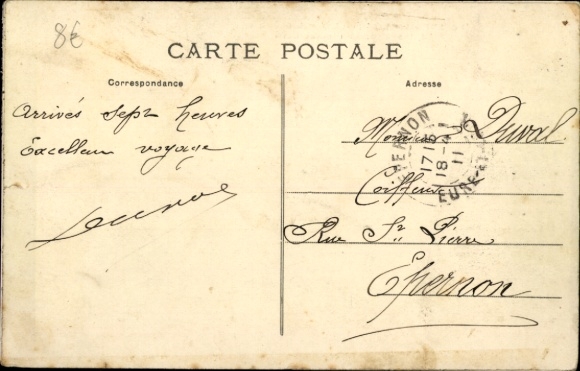 8€
CARTE POSTALE
Correspondance
Adresse
Arrivés Sept heures
Excellent voyage
Monsieur Duval
Coiffeur
Rue St Pierre
Epernon
VERNON
17 15
18-4
11
EURE